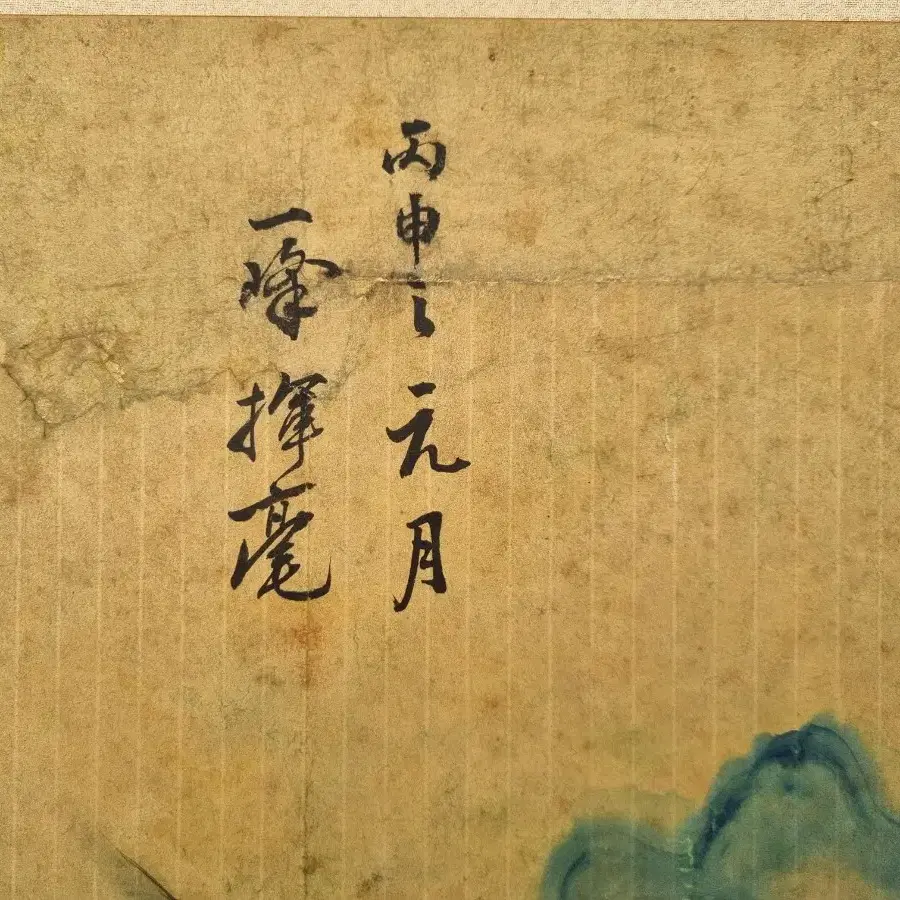 丙申之元月
一峰揮毫